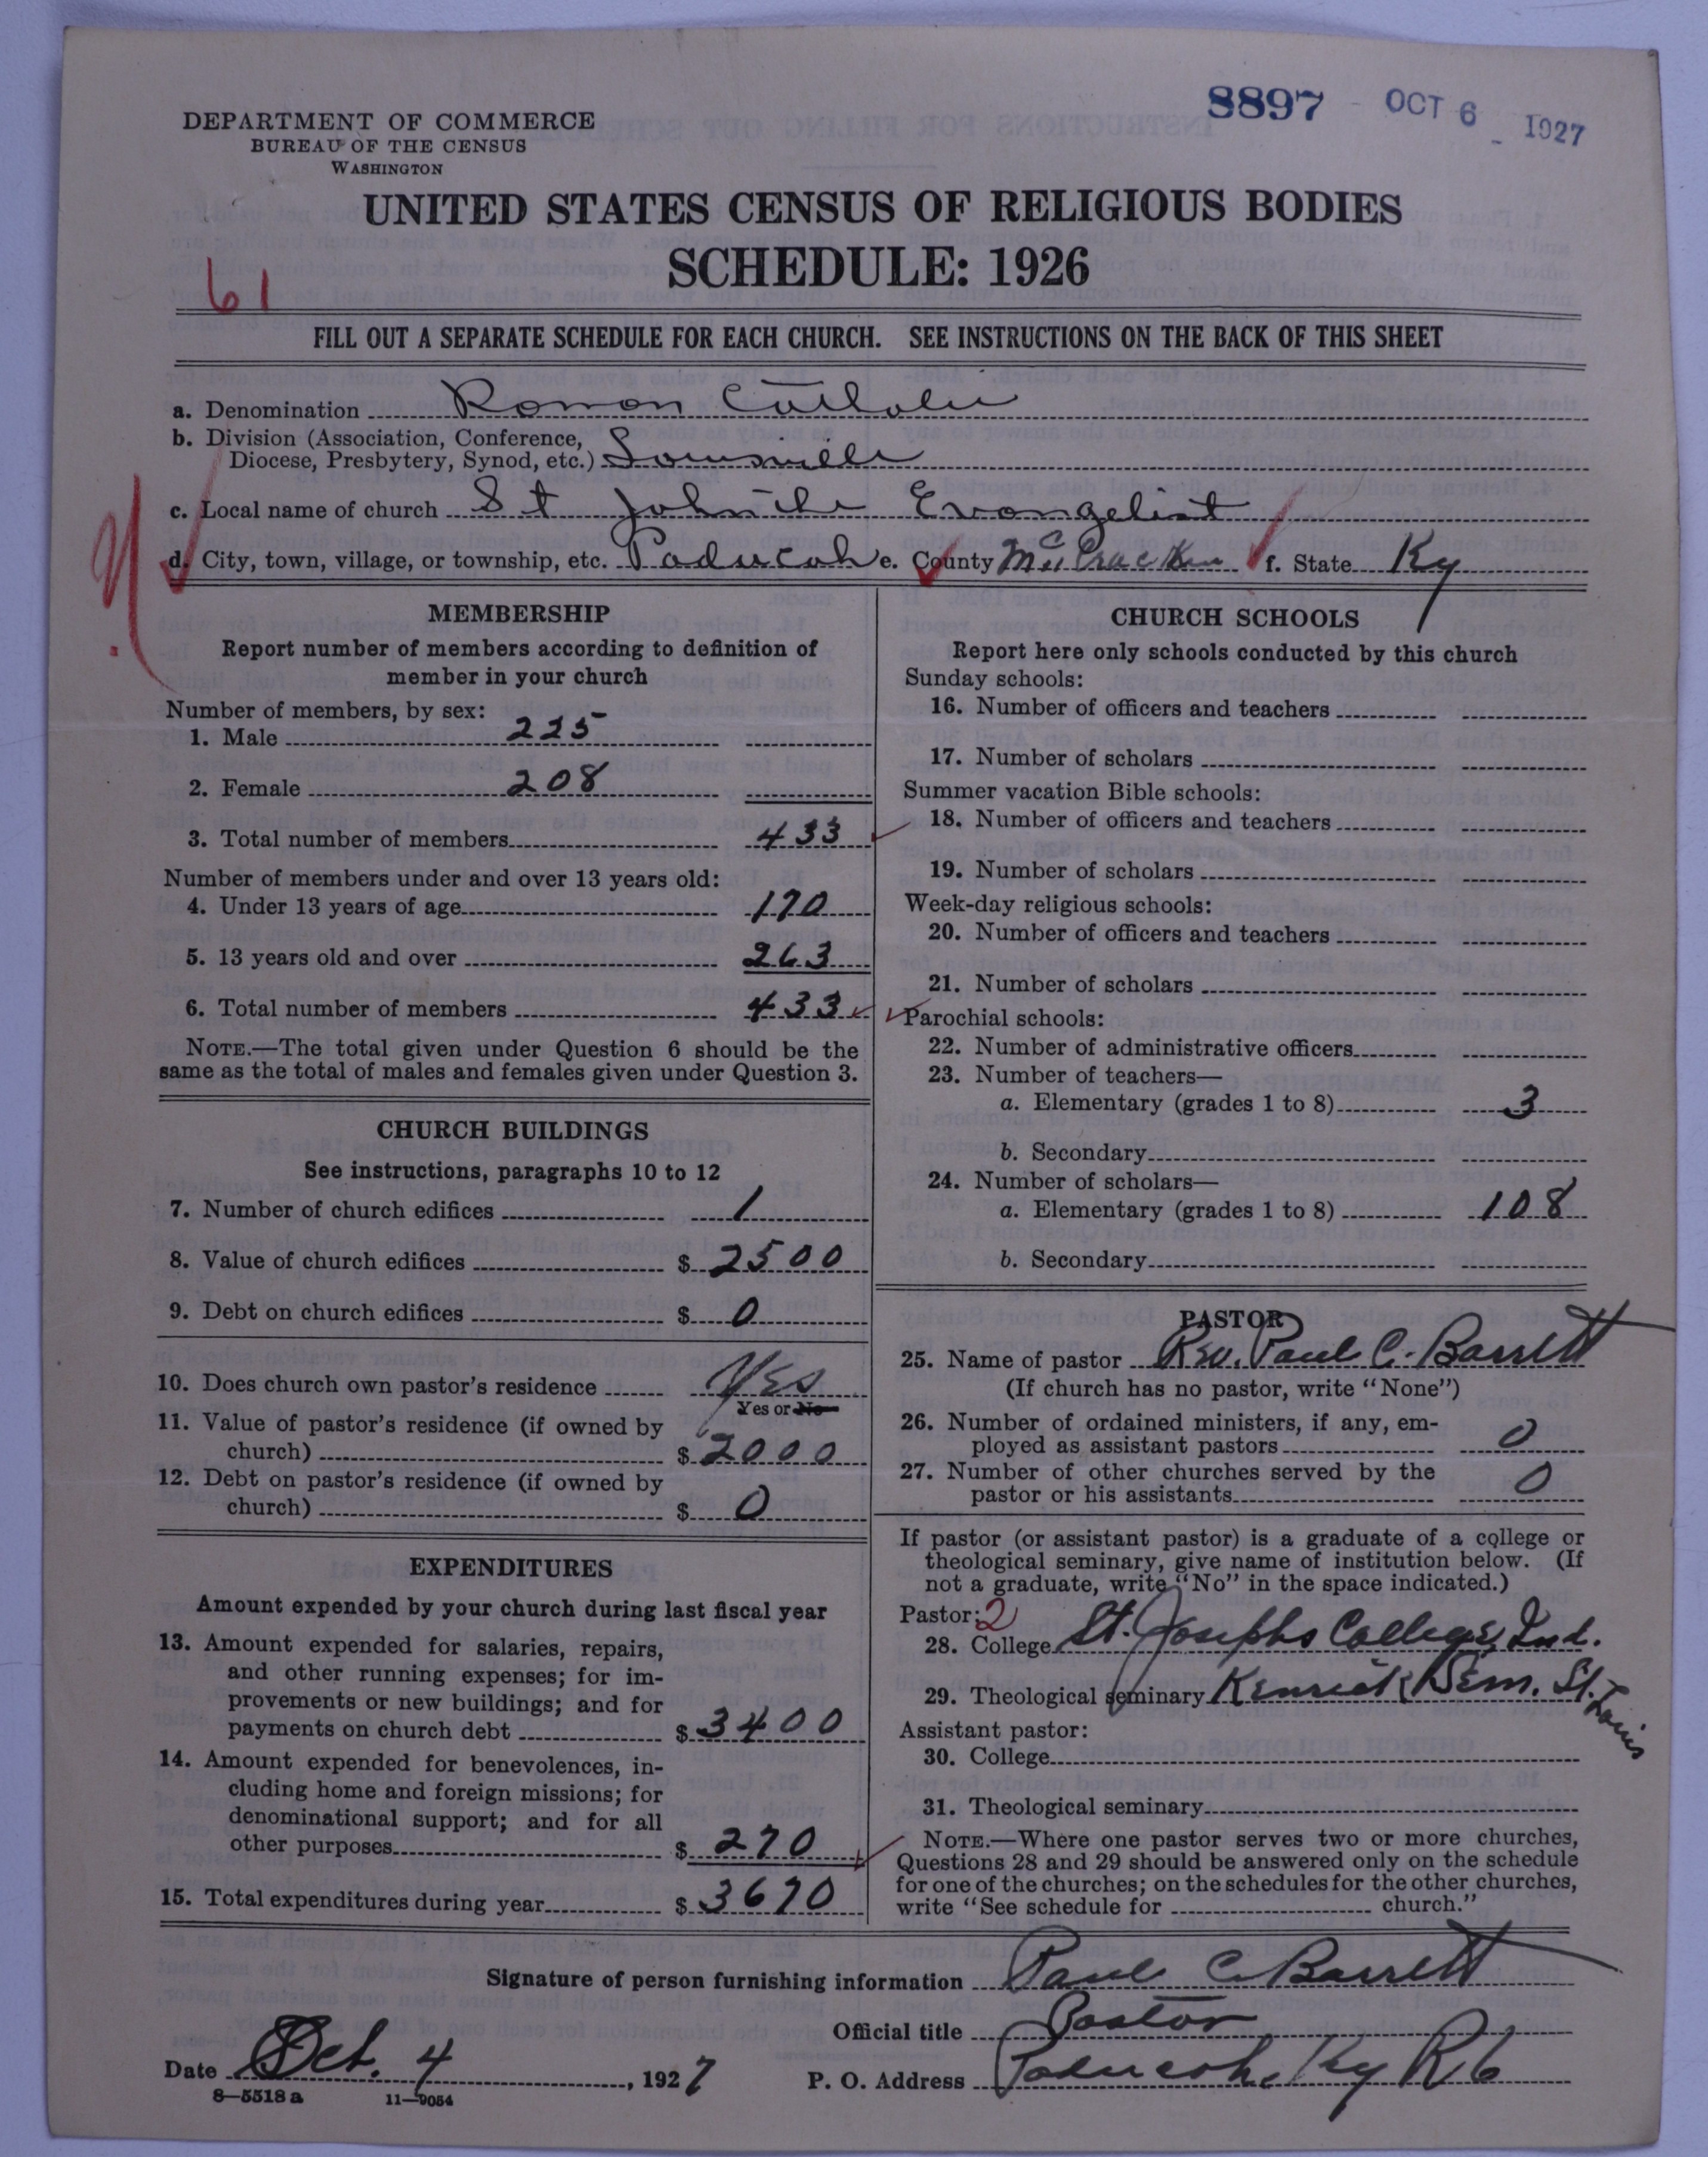 8897 OCT 6 1927
DEPARTMENT OF COMMERCE
BUREAU OF THE CENSUS
WASHINGTON
UNITED STATES CENSUS OF RELIGIOUS BODIES
SCHEDULE: 1926
61
FILL OUT A SEPARATE SCHEDULE FOR EACH CHURCH. SEE INSTRUCTIONS ON THE BACK OF THIS SHEET
a. Denomination Roman Catholic
b. Division (Association, Conference,
Diocese, Presbytery, Synod, etc.) Louisville
c. Local name of church St John the Evangelist
d. City, town, village, or township, etc. Paducah e. County McCracken f. State Ky
MEMBERSHIP
Report number of members according to definition of
member in your church
Number of members, by sex:
1. Male 225
2. Female 208
3. Total number of members 433
Number of members under and over 13 years old:
4. Under 13 years of age 170
5. 13 years old and over 263
6. Total number of members 433
NOTE.—The total given under Question 6 should be the
same as the total of males and females given under Question 3.
CHURCH BUILDINGS
See instructions, paragraphs 10 to 12
7. Number of church edifices 1
8. Value of church edifices $ 2500
9. Debt on church edifices $ 0
10. Does church own pastor's residence Yes
Yes or No
11. Value of pastor's residence (if owned by
church) $ 2000
12. Debt on pastor's residence (if owned by
church) $ 0
EXPENDITURES
Amount expended by your church during last fiscal year
13. Amount expended for salaries, repairs,
and other running expenses; for im-
provements or new buildings; and for
payments on church debt $ 3400
14. Amount expended for benevolences, in-
cluding home and foreign missions; for
denominational support; and for all
other purposes $ 270
15. Total expenditures during year $ 3670
CHURCH SCHOOLS
Report here only schools conducted by this church
Sunday schools:
16. Number of officers and teachers
17. Number of scholars
Summer vacation Bible schools:
18. Number of officers and teachers
19. Number of scholars
Week-day religious schools:
20. Number of officers and teachers
21. Number of scholars
Parochial schools:
22. Number of administrative officers
23. Number of teachers—
a. Elementary (grades 1 to 8) 3
b. Secondary
24. Number of scholars—
a. Elementary (grades 1 to 8) 108
b. Secondary
PASTOR
25. Name of pastor Rev. Paul C. Barrett
(If church has no pastor, write "None")
26. Number of ordained ministers, if any, em-
ployed as assistant pastors 0
27. Number of other churches served by the
pastor or his assistants 0
If pastor (or assistant pastor) is a graduate of a college or
theological seminary, give name of institution below. (If
not a graduate, write "No" in the space indicated.)
Pastor: 2
28. College St. Josephs College, Ind.
29. Theological seminary Kenrick Sem. St. Louis
Assistant pastor:
30. College
31. Theological seminary
NOTE.—Where one pastor serves two or more churches,
Questions 28 and 29 should be answered only on the schedule
for one of the churches; on the schedules for the other churches,
write "See schedule for church."
Signature of person furnishing information Paul C. Barrett
Official title Pastor
Date Oct. 4, 1927 P. O. Address Paducah, Ky R6
8—5518a 11—9054